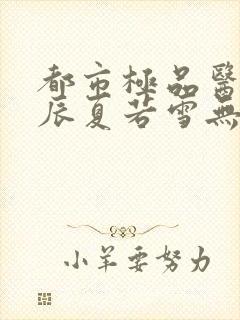 都市極品醫
辰夏若雪無
小羊要努力